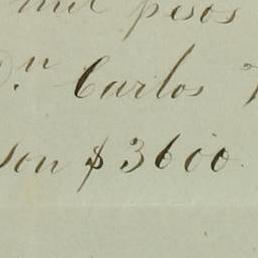 mil pesos
D.n Carlos
Son $ 3600